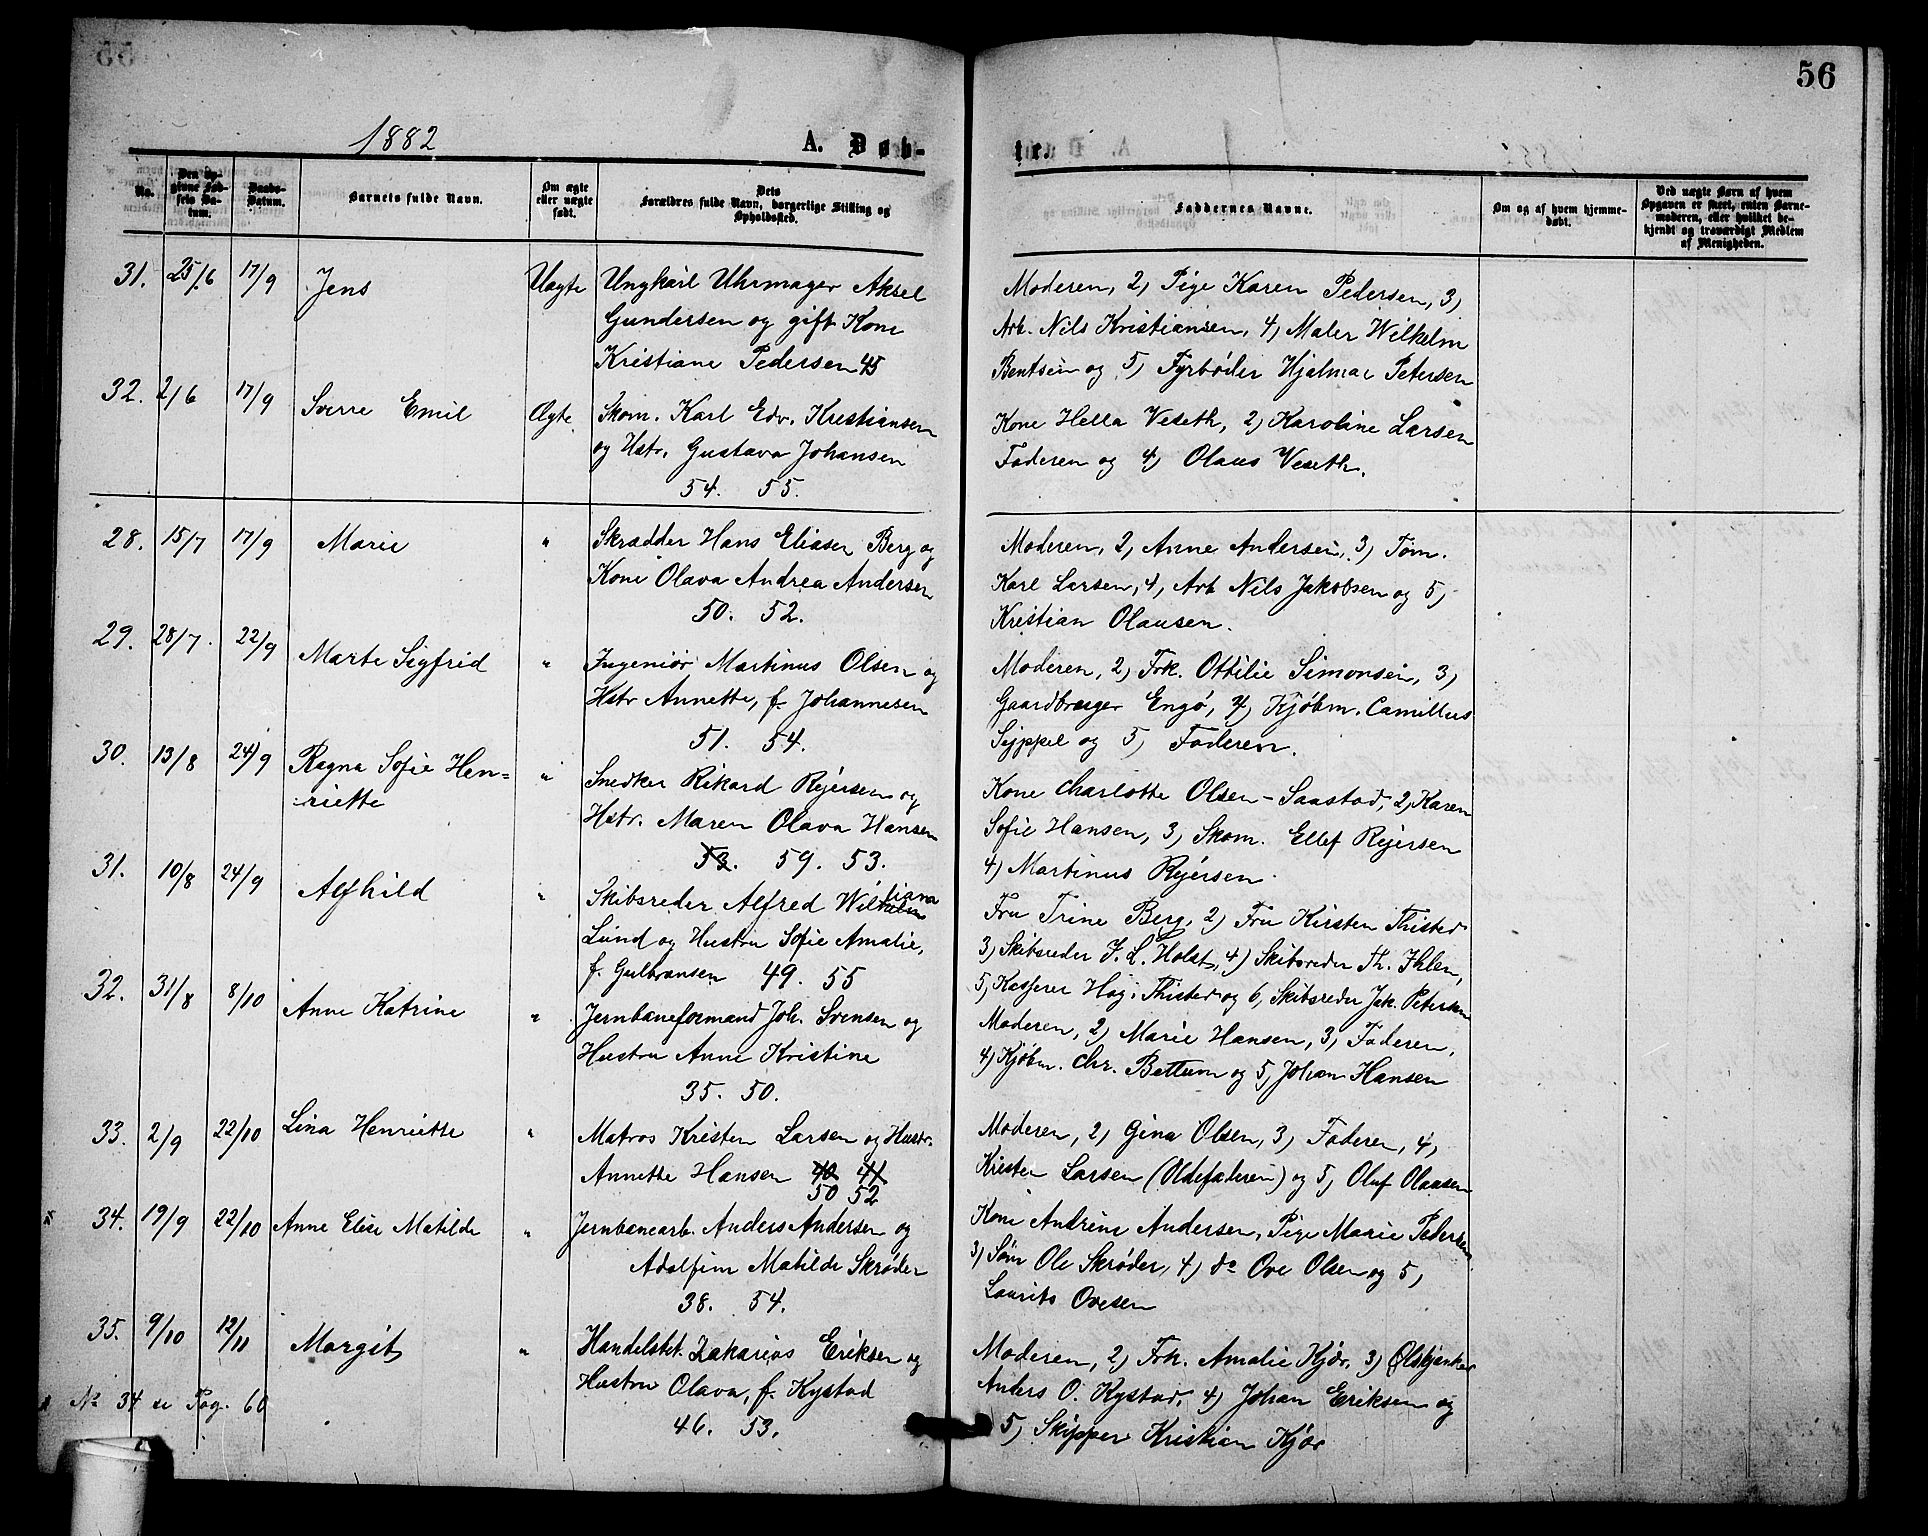 56
1882
A. Døb-
te.
No.
Den opgivne Fødsels Datum.
Daabs-Datum.
Barnets fulde Navn.
Om ægte eller uægte født.
Dets Forældres fulde Navn, borgerlige Stilling og Opholdssted.
Faddernes Navne.
Om og af hvem hjemmedøbt.
Ved uægte Barn af hvem Opgaven er skeet, enten Barnemoderen, eller hvilket bekjendt og troværdigt Medlem af Menigheden.
31. 25/6 17/9 Jens Uægte Ungkarl Uhrmager Aksel
Gundersen og gift Kone
Kristiane Pedersen 45
Moderen, 2) Pige Karen Pedersen, 3)
Arb. Nils Kristiansen, 4) Maler Wilhelm
Bentsen og 5) Fyrbøder Hjalmar Petersen
32. 2/6 17/9 Sverre Emil Ægte Skom. Karl Edv. Kristiansen
og Hstr. Gustava Johansen
54. 55.
Kone Hella Veseth, 2) Karoline Larsen
Faderen og 4) Olaus Veseth.
28. 15/7 17/9 Marie " Skrædder Hans Eliasen Berg og
Kone Olava Andrea Andersen
50. 52.
Moderen, 2, Anne Andersen, 3) Tøm.
Karl Larsen, 4, Arb Nils Jakobsen og 5)
Kristian Olausen.
29. 28/7. 22/9 Marte Sigfrid " Ingeniør Martinus Olsen og
Hstr Annette, f. Johannesen
51. 54.
Moderen, 2) Frk. Ottilie Simonsen, 3)
Gaardbruger Engø, 4) Kjøbm. Camillus
og 5) Faderen.
30. 13/8 24/9 Ragna Sofie Hen=
riette " Snedker Rikard Rejersen og
Hstr. Maren Olava Hansen
53. 59. 53.
Kone Charlotte Olsen-Saastad, 2, Karen
Sofie Hansen, 3) Skom. Ellef Rejersen
4) Martinus Rejersen.
31. 10/8 24/9 Alfhild " Skibsreder Alfred
Lund og Hustru Sofie Amalie,
f. Gulbransen 49. 55
Fru Trine Berg, 2) Fru Kirsten Thister
3) Skibsreder J. L. Holst, 4) Skibsreder Th. Ihlen,
5, Kasserer Thister og 6, Skibsreder Jak. Petersen
32. 31/8 8/10 Anne Katrine " Jernbaneformand Joh. Svensen og
Hustru Anne Kristine
35. 50.
Moderen, 2) Marie Hansen, 3) Faderen,
4) Kjøbm. Chr. Bettum og 5, Johan Hansen
33. 2/9 22/10 Lina Henriette " Matros Kristen Larsen og Hustr.
Annette Hansen 40 41
50 52
Moderen, 2, Gina Olsen, 3) Faderen, 4,
Kristen Larsen (Oldefaderen) og 5, Oluf Olausen
34. 19/9 22/10 Anne Elise Matilde " Jernbanearb. Anders Andersen og
Adolfine Matilde Skrøder
38. 54.
Kone Andrine Andersen, Pige Marie Pedersen
3) Søm Ole Skrøder, 4) do Ove Olsen og 5,
Laurits Ovesen
35. 9/10 12/11 Margit " Handelsbet. Zakarias Eriksen og
Hustru Olava, f. Kystad
46. 53.
Moderen, 2, Frk. Amalie Kjær, 3) Ølskjænker
Anders O. Kystad, 4) Johan Eriksen og
5) Skipper Kristian Kjær
No 34 se Pag. 60